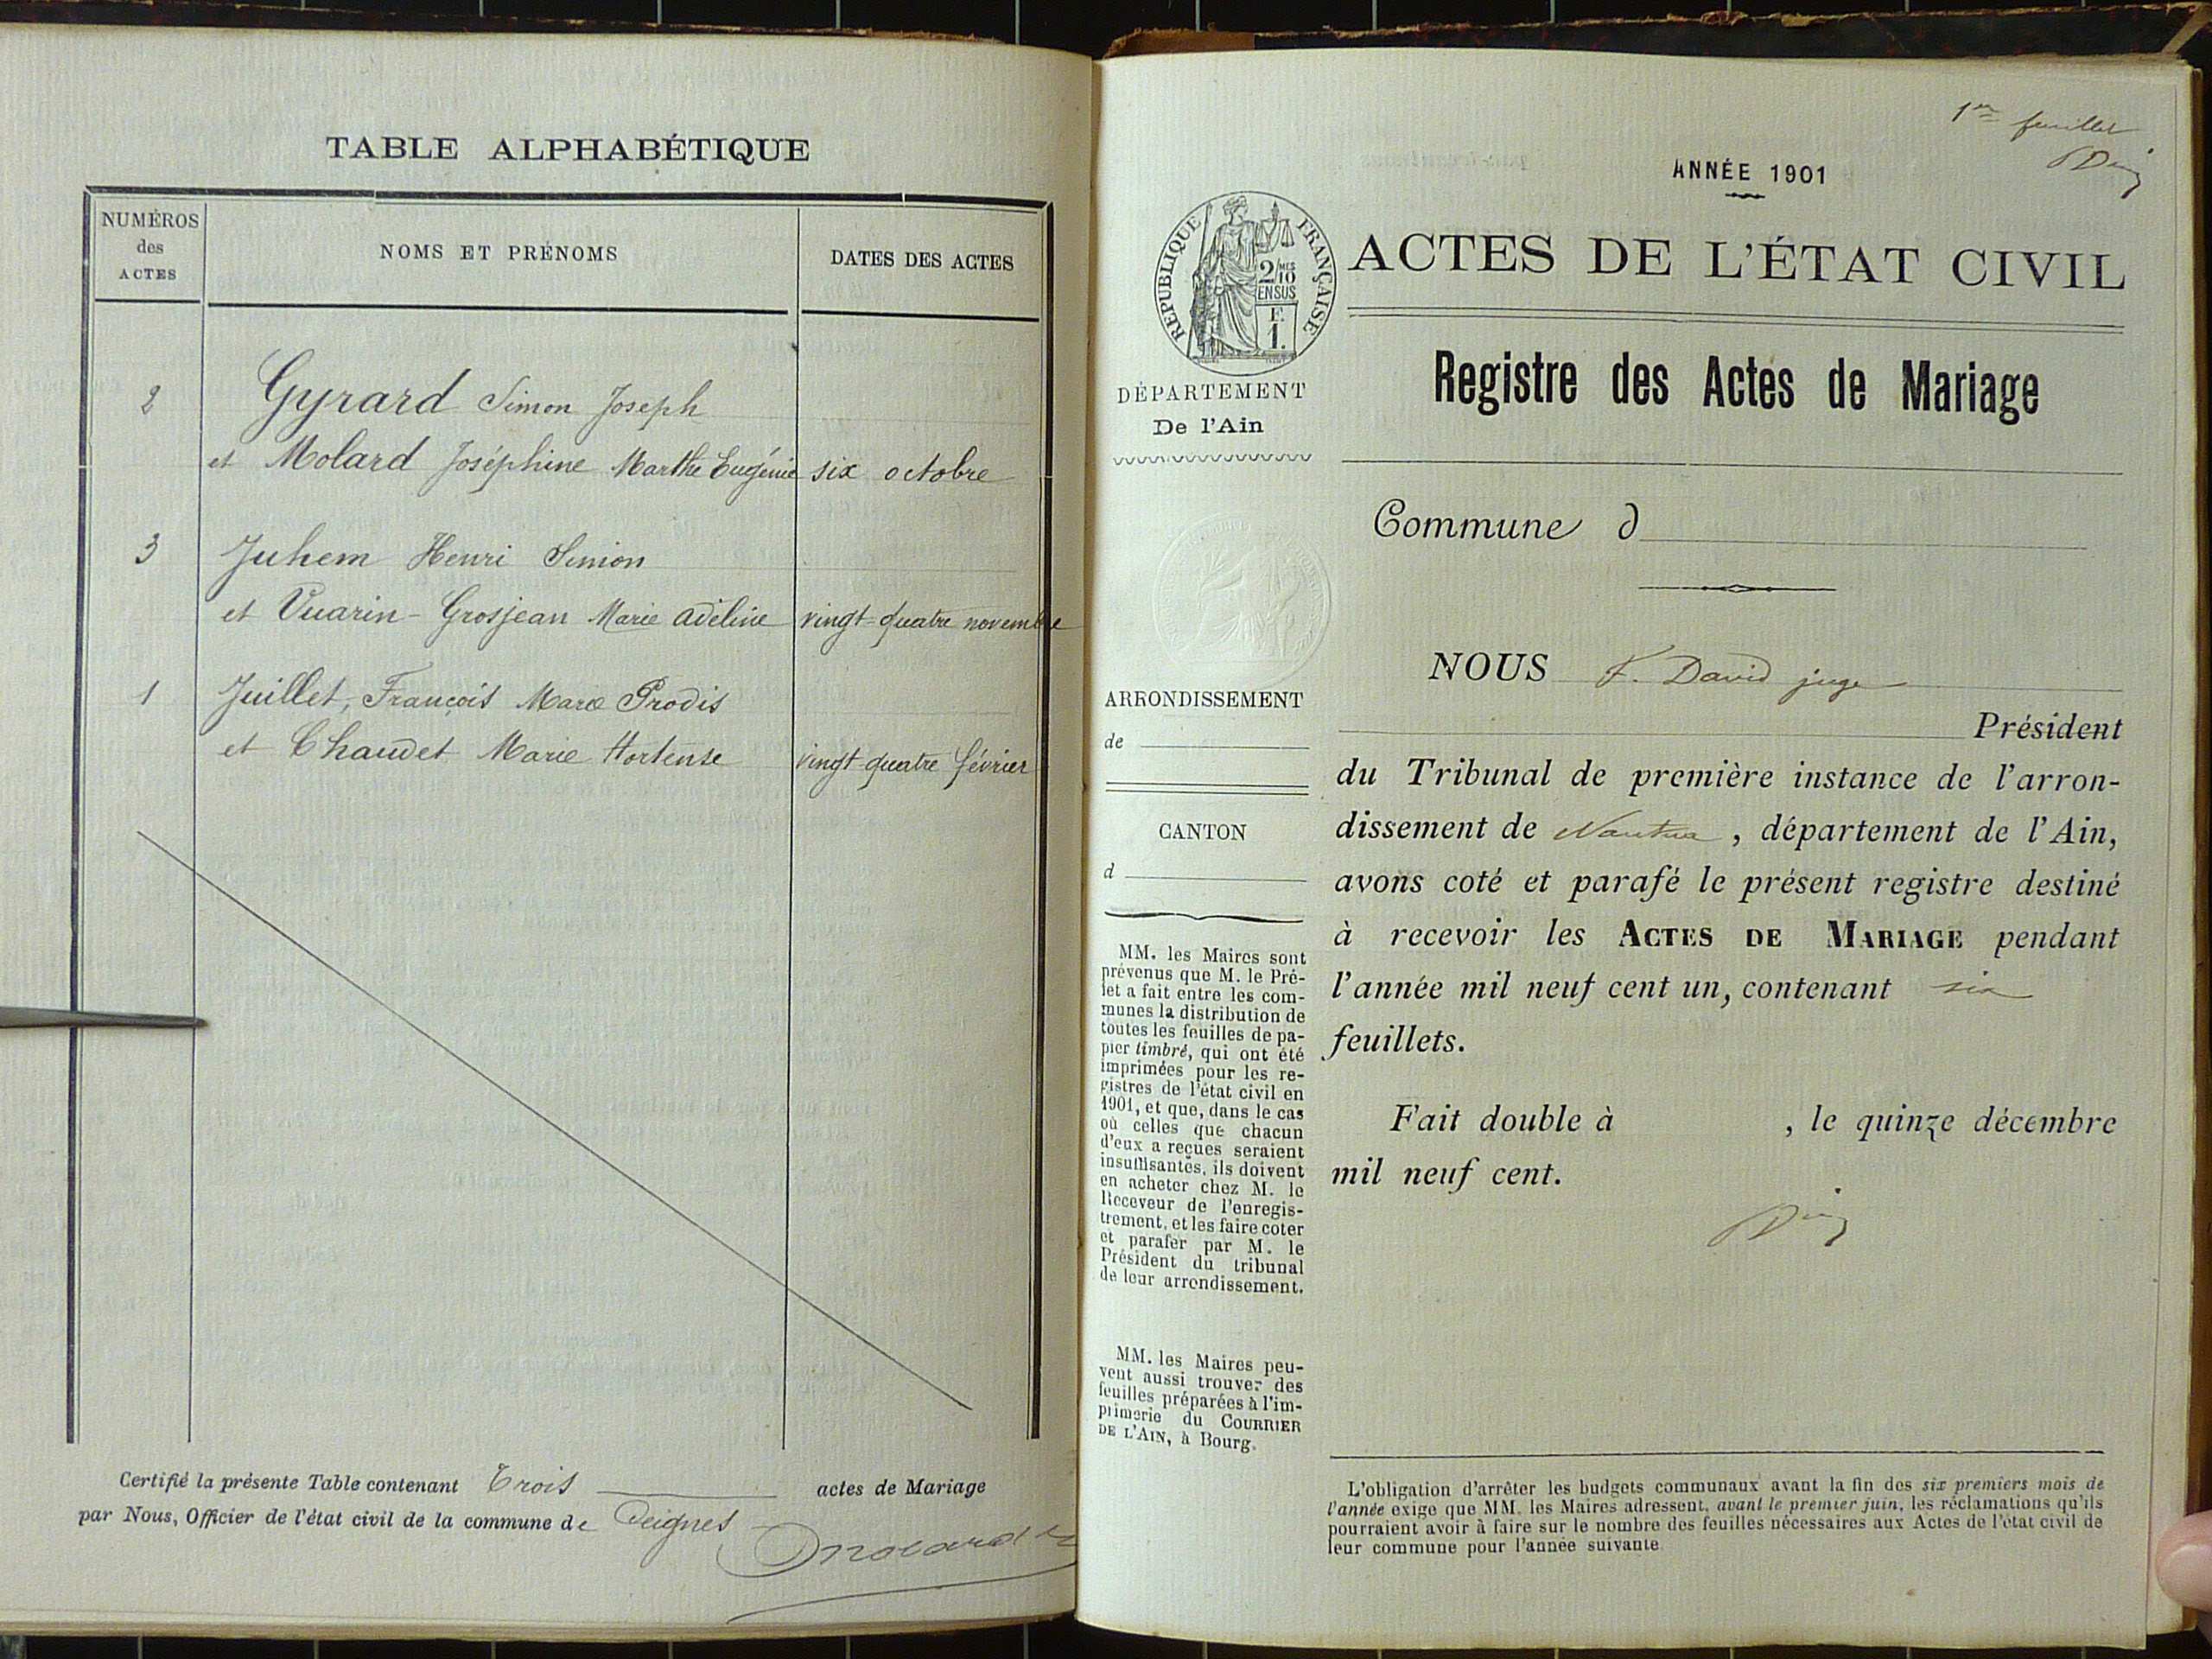 TABLE ALPHABÉTIQUE
NUMÉROS
des
ACTES
NOMS ET PRÉNOMS
DATES DES ACTES
2 Gyrard Simon Joseph
et Molard Joséphine Marthe Eugénie six octobre
3 Juhem Henri Simon
et Vuarin-Grosjean Marie Adéline vingt-quatre novembre
1 Juillet, François Marie Prodis
et Chaudet Marie Hortense vingt quatre février
Certifié la présente Table contenant Trois actes de Mariage
par Nous, Officier de l'état civil de la commune de Peignes
1er feuillet
ANNÉE 1901
RÉPUBLIQUE FRANÇAISE
2/10 MES
EN SUS
F.
1.
ACTES DE L'ÉTAT CIVIL
DÉPARTEMENT
De l'Ain
Registre des Actes de Mariage
Commune d
NOUS F. David juge
Président
du Tribunal de première instance de l'arron-
dissement de Nantua, département de l'Ain,
avons coté et parafé le présent registre destiné
à recevoir les ACTES DE MARIAGE pendant
l'année mil neuf cent un, contenant six
feuillets.
Fait double à , le quinze décembre
mil neuf cent.
ARRONDISSEMENT
de
CANTON
d
MM. les Maires sont
prévenus que M. le Pré-
fet a fait entre les com-
munes la distribution de
toutes les feuilles de pa-
pier timbré, qui ont été
imprimées pour les re-
gistres de l'état civil en
1901, et que, dans le cas
où celles que chacun
d'eux a reçues seraient
insuffisantes, ils doivent
en acheter chez M. le
Receveur de l'enregis-
trement, et les faire coter
et parafer par M. le
Président du tribunal
de leur arrondissement.
MM. les Maires peu-
vent aussi trouver des
feuilles préparées à l'im-
primerie du COURRIER
DE L'AIN, à Bourg.
L'obligation d'arrêter les budgets communaux avant la fin des six premiers mois de
l'année exige que MM. les Maires adressent, avant le premier juin, les réclamations qu'ils
pourraient avoir à faire sur le nombre des feuilles nécessaires aux Actes de l'état civil de
leur commune pour l'année suivante.